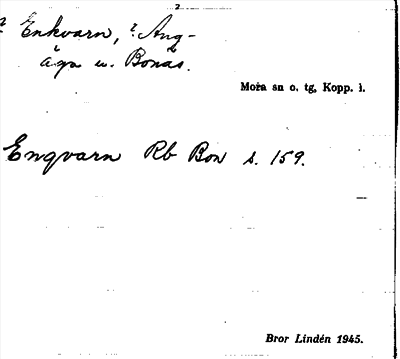 Enkvarn, Äng-
äga u. Bonäs.
Mora sn o. tg, Kopp. l.
Enqvarn Rb Bon s. 159.
Bror Lindén 1945.